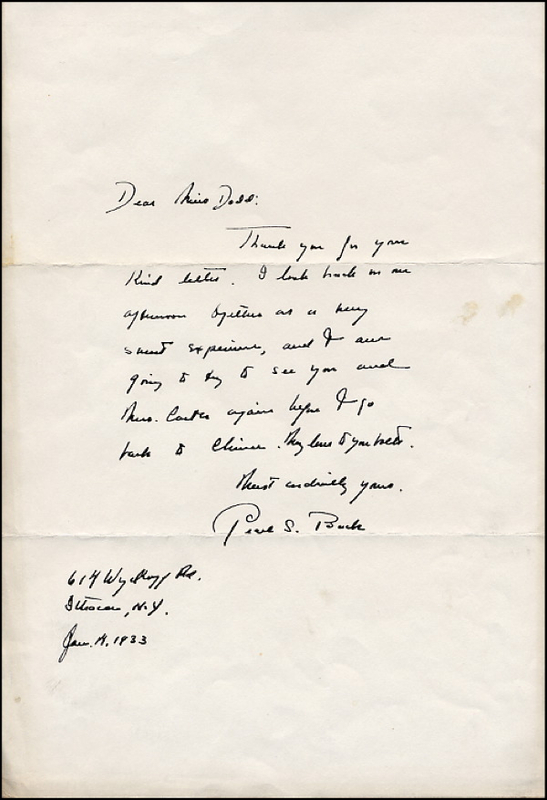 Dear Miss Dodd:
Thank you for your
kind letter. I look back on our
afternoon together as a very
sweet experience, and I am
going to try to see you and
Mrs. Carter again before I go
back to China. My love to you both.
Most cordially yours,
Pearl S. Buck
614 Wyckoff Rd.
Ithaca, N.Y.
Jan. 1933